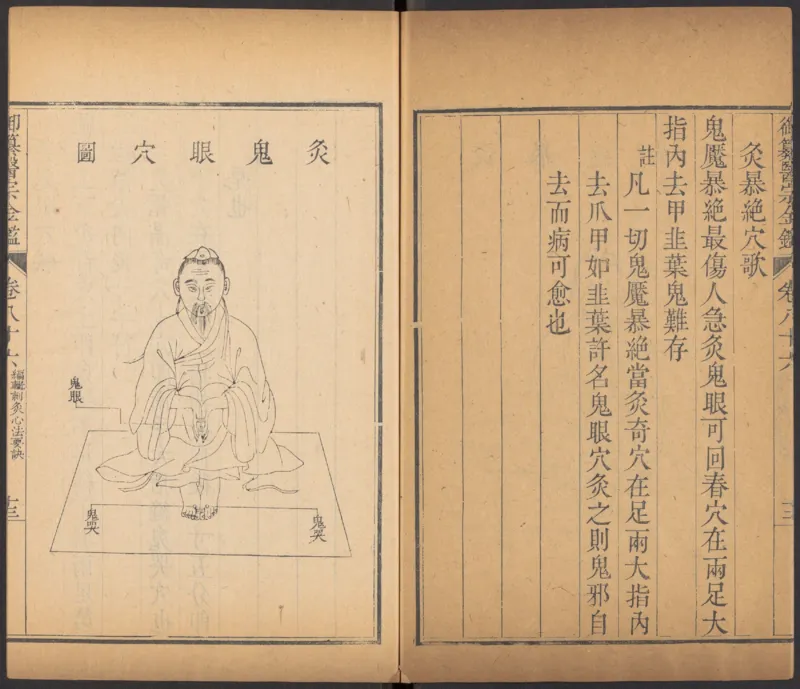 灸暴絶穴歌
鬼魘暴絶最傷人急灸鬼眼可回春穴在兩足大
指內去甲韭葉鬼難存
註
凡一切鬼魘暴絶當灸奇穴在足兩大指內
去爪甲如韭葉許名鬼眼穴灸之則鬼邪自
去而病可愈也
灸鬼眼穴圖
鬼眼
鬼哭
鬼哭
御纂醫宗金鑑
卷八十六
編輯刺灸心法要訣
十三
御纂醫宗金鑑
卷八十六
十三